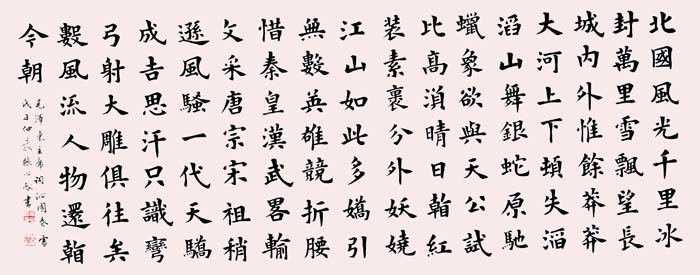 北國風光千里冰
封萬里雪飄望長
城内外惟餘莽莽
大河上下頓失滔
滔山舞銀蛇原馳
蠟象欲與天公試
比高湏晴日㸔紅
装素裹分外妖嬈
江山如此多嬌引
無數英雄競折腰
惜秦皇漢武畧輸
文采唐宗宋祖稍
遜風騷一代天驕
成吉思汗只識彎
弓射大雕俱往矣
數風流人物還㸔
今朝
毛澤東主席詞沁園春雪
戊子仲夏書